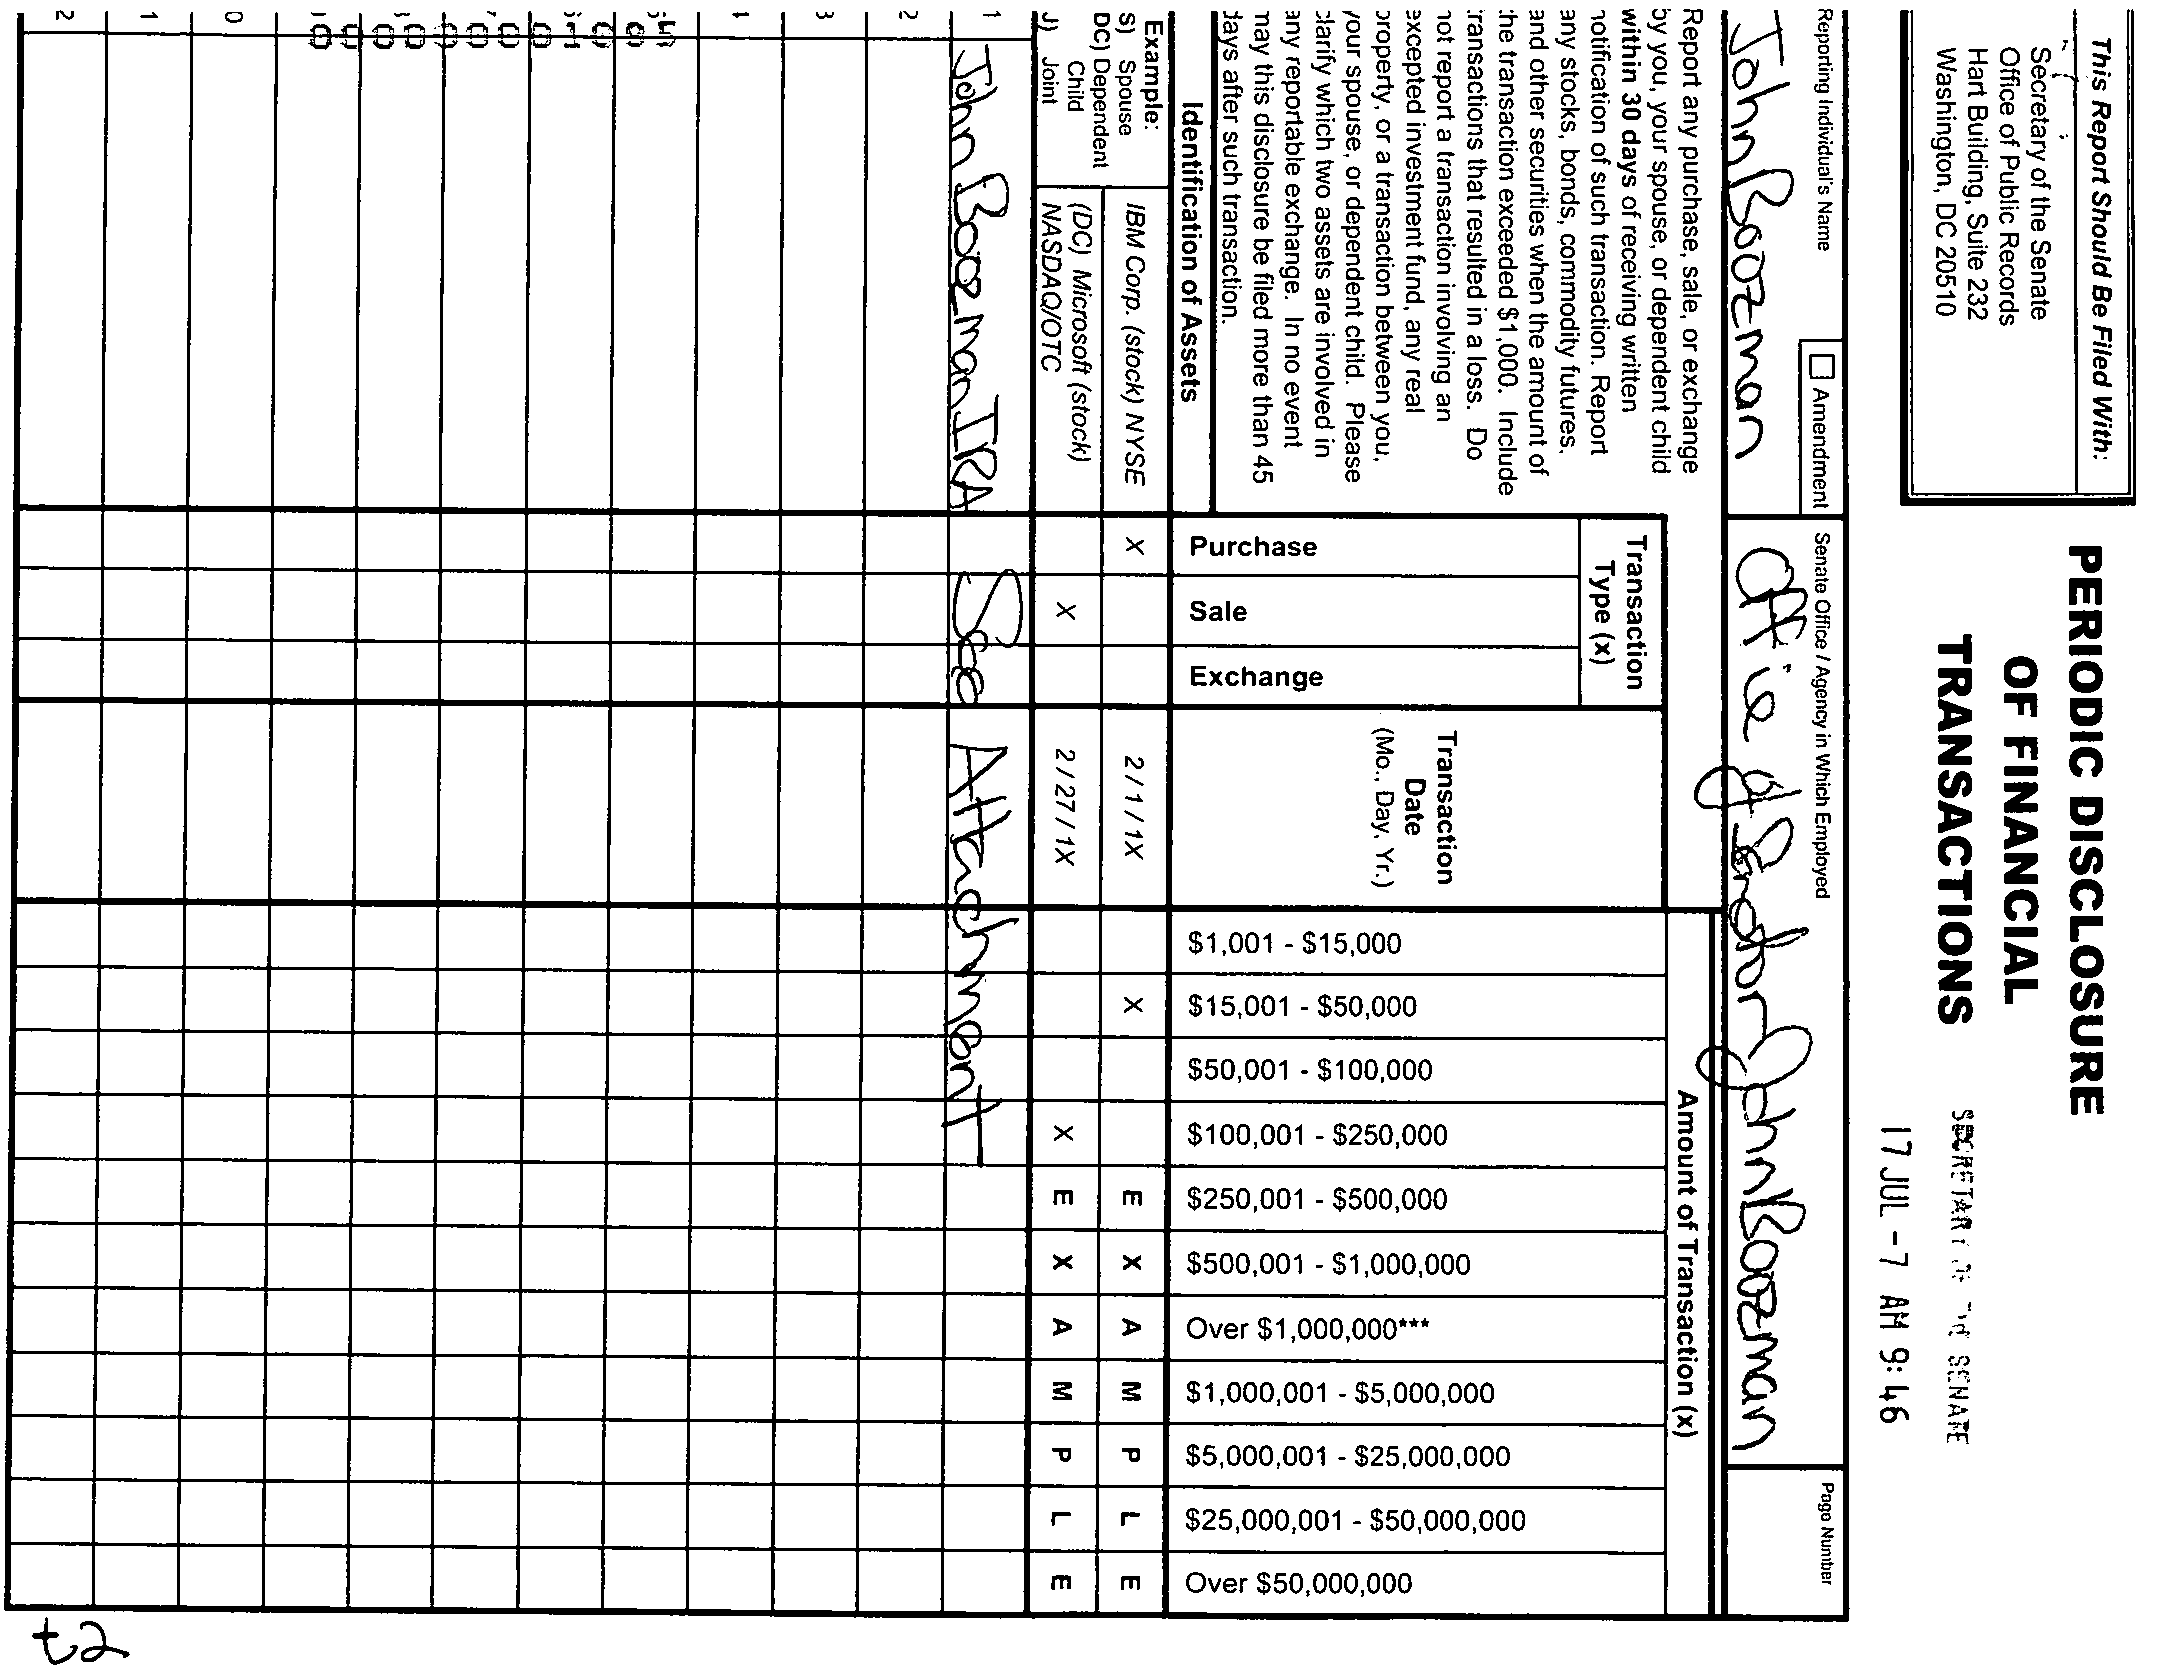 This Report Should Be Filed With:
Secretary of the Senate
Office of Public Records
Hart Building, Suite 232
Washington, DC 20510
PERIODIC DISCLOSURE
OF FINANCIAL
TRANSACTIONS
SECRETARY OF THE SENATE
17 JUL -7 AM 9:46
Reporting Individual's Name
Amendment
John Boozman
Senate Office / Agency in Which Employed
Office of Senator John Boozman
Page Number
Report any purchase, sale, or exchange
by you, your spouse, or dependent child
within 30 days of receiving written
notification of such transaction. Report
any stocks, bonds, commodity futures,
and other securities when the amount of
the transaction exceeded $1,000. Include
transactions that resulted in a loss. Do
not report a transaction involving an
excepted investment fund, any real
property, or a transaction between you,
your spouse, or dependent child. Please
clarify which two assets are involved in
any reportable exchange. In no event
may this disclosure be filed more than 45
days after such transaction.
Identification of Assets
Transaction
Type (x)
Purchase
Sale
Exchange
Transaction
Date
(Mo., Day, Yr.)
Amount of Transaction (x)
$1,001 - $15,000
$15,001 - $50,000
$50,001 - $100,000
$100,001 - $250,000
$250,001 - $500,000
$500,001 - $1,000,000
Over $1,000,000***
$1,000,001 - $5,000,000
$5,000,001 - $25,000,000
$25,000,001 - $50,000,000
Over $50,000,000
Example:
S) Spouse
DC) Dependent
Child
J) Joint
IBM Corp. (stock) NYSE X 2/1/1X X E X A M P L E
(DC) Microsoft (stock)
NASDAQ/OTC X 2/27/1X X E X A M P L E
1 John Boozman IRA See Attachment
2
3